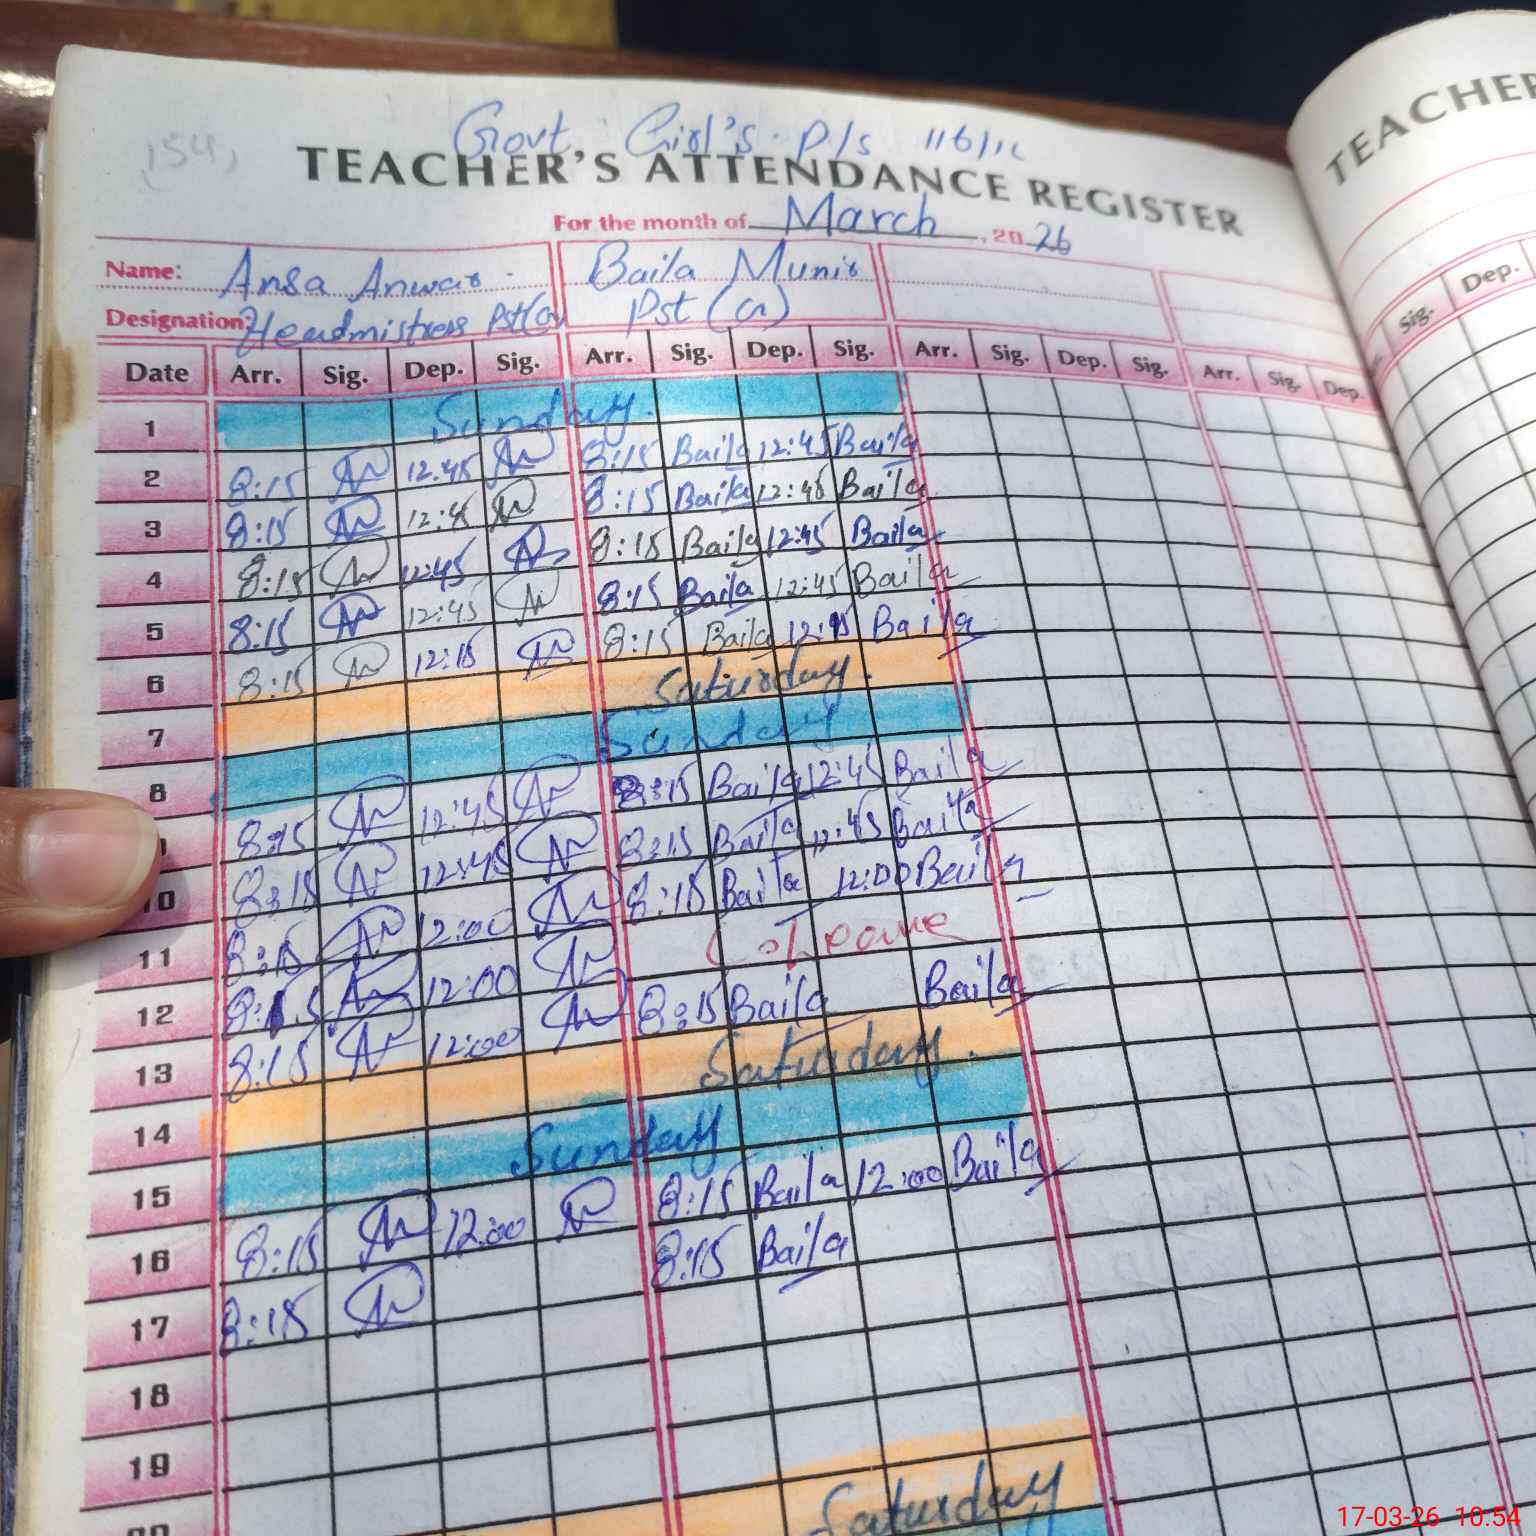 Govt. Girl's P/s 116/12
TEACHER'S ATTENDANCE REGISTER
TEACHER
For the month of March, 2026
Name: Ansa Anwar Baila Munir
Designation: Headmistress Pst(G) Pst (G)
Date Arr. Sig. Dep. Sig. Arr. Sig. Dep. Sig. Arr. Sig. Dep. Sig. Arr. Sig. Dep. Sig. Dep.
1 Sunday.
2 8:15 12:45 8:15 Baila 12:45 Baila
3 8:15 12:45 8:15 Baila 12:45 Baila
4 8:15 12:45 8:15 Baila 12:45 Baila
5 8:15 12:45 8:15 Baila 12:45 Baila
6 8:15 12:15 8:15 Baila 12:15 Baila
7 Saturday.
8 Sunday
8:15 12:45 8:15 Baila 12:45 Baila
10 8:15 12:45 8:15 Baila 12:45 Baila
11 8:15 12:00 8:15 Baila 12:00 Baila
12 8:15 12:00 C-Leave
13 8:15 12:00 8:15 Baila Baila
14 Saturday.
15 Sunday
16 8:15 12:00 8:15 Baila 12:00 Baila
17 8:15 8:15 Baila
18
19
20
Saturday
17-03-26 10:54